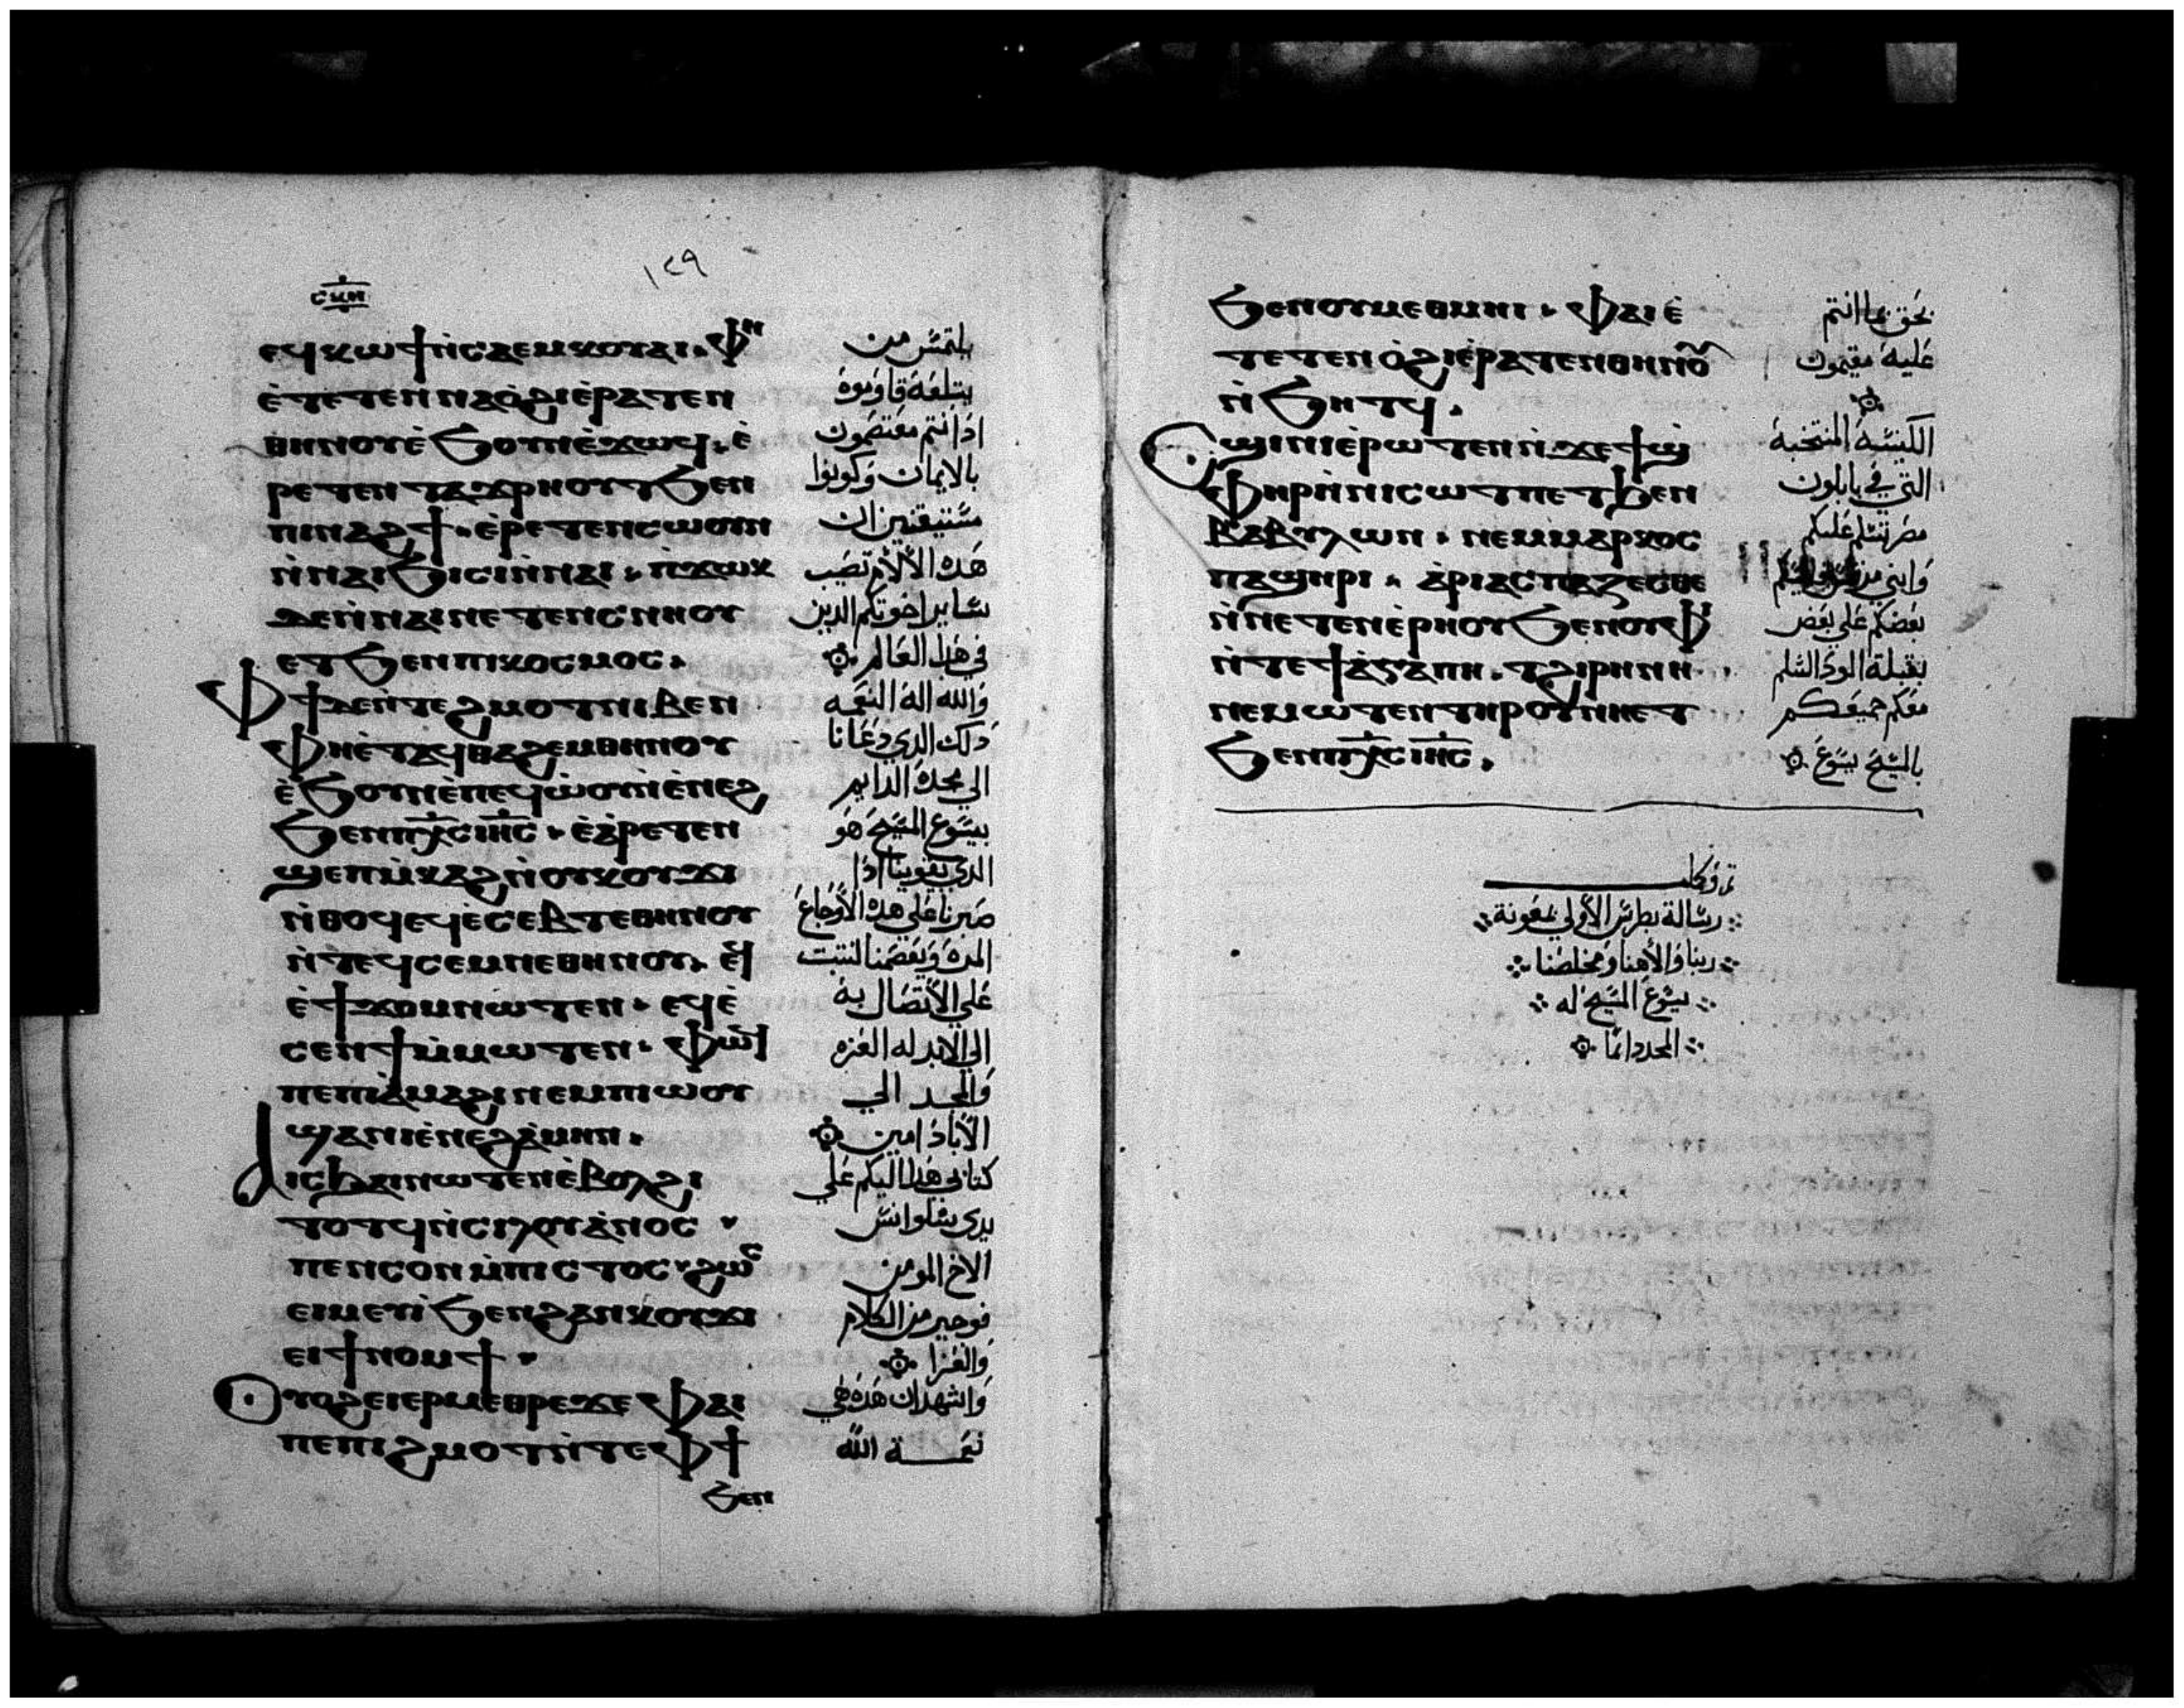 ١٤٩
ⲥⲙⲏ
ⲉϥⲕⲱϯⲛ̀ⲥⲁⲉⲙⲕⲟⲩⲁⲓ. ⲫⲏ
ⲉ̀ⲧⲉⲧⲉⲛⲛⲁⲟ̀ϩⲓⲉ̀ⲣⲁⲧⲉⲛ
ⲑⲏⲛⲟⲩⲉ̀ϧⲟⲩⲛⲉ̀ϫⲱϥ. ⲉ̀
ⲣⲉⲧⲉⲛⲧⲁϫⲣⲏⲟⲩⲧϧⲉⲛ
ⲡⲓⲛⲁϩϯ. ⲉ̀ⲣⲉⲧⲉⲛⲥⲱⲟⲩⲛ
ⲛ̀ⲛⲁⲓϧⲓⲥⲓⲛ̀ⲛⲁⲓ. ⲛ̀ϫⲱⲕ
ϫⲉⲛ̀ⲛⲁⲓⲛⲉⲧⲉⲛⲥⲛⲏⲟⲩ
ⲉⲧϧⲉⲛⲡⲓⲕⲟⲥⲙⲟⲥ.
ⲫϯⲇⲉⲛ̀ⲧⲉϩⲙⲟⲧⲛⲓⲃⲉⲛ
ⲫⲏⲉ̀ⲧⲁϥⲑⲁϩⲉⲙⲑⲏⲛⲟⲩ
ⲉ̀ϧⲟⲩⲛⲉ̀ⲡⲉϥⲱ̀ⲟⲩⲛ̀ⲉ̀ⲛⲉϩ
ϧⲉⲛⲡⲭ̅ⲥ̅ⲓⲏ̅ⲥ̅. ⲉ̀ⲁ̀ⲣⲉⲧⲉⲛ
ϣⲉⲡⲙ̀ⲕⲁϩⲛ̀ⲟⲩⲕⲟⲩϫⲓ
ⲛ̀ⲑⲟϥⲉϥⲉ̀ⲥⲉⲃⲧⲉⲑⲏⲛⲟⲩ
ⲛ̀ⲧⲉϥⲥⲉⲙⲛⲉⲑⲏⲛⲟⲩ. ⲉϥ
ⲉ̀ϯϫⲟⲙⲛⲱⲧⲉⲛ. ⲉϥⲉ̀
ⲥⲉⲛϯⲙ̀ⲙⲱⲧⲉⲛ. ⲫⲱϥ
ⲡⲉⲡⲓⲁ̀ⲙⲁϩⲓⲛⲉⲙⲡⲓⲱⲟⲩ
ϣⲁⲛⲓⲉ̀ⲛⲉϩⲁ̀ⲙⲏⲛ.
ⲁⲓⲥϧⲁⲓⲛⲱⲧⲉⲛⲉ̀ⲃⲟⲗϩⲓ
ⲧⲟⲧϥⲛ̀ⲥⲓⲗⲟⲩⲁ̀ⲛⲟⲥ
ⲡⲉⲛⲥⲟⲛⲙ̀ⲡⲓⲥⲧⲟⲥϩⲱⲥ
ⲉⲓⲙⲉⲩⲓ̀ϧⲉⲛϩⲁⲛⲕⲟⲩϫⲓ
ⲉⲓϯⲛⲟⲙϯ
ⲟⲩⲟϩⲉⲓⲉⲣⲙⲉⲑⲣⲉϫⲉⲫⲁⲓ
ⲡⲉⲡⲓϩⲙⲟⲧⲛ̀ⲧⲉⲫϯ
ϧⲉⲛ
يلتمس من
يبتلعه قاوموه
اذا انتم معتصمون
بالايمان وكونوا
مستيقنين ان
هذه الآلام تصيب
ساير اخوتكم الذين
في هذا العالم
والله اله النعمه
ذلك الذي دعانا
الي مجده الدايم
بيسوع المسيح هو
الذي يقوينا اذا
صبرنا علي هذه الاوجاع
المده ويعصمنا لنثبت
علي الاتصال به
الي الابد له العزه
والمجد الي
الآباد امين
كتابي هذا اليكم علي
يدي سلوانس
الاخ المومن
فوجيز من الكلام
والعزا
واشهد ان هذه هي
نعمة الله
ϧⲉⲛⲟⲩⲙⲉⲑⲙⲏⲓ. ⲫⲁⲓⲉ̀
ⲧⲉⲧⲉⲛⲟ̀ϩⲓⲉ̀ⲣⲁⲧⲉⲛⲑⲏⲛⲟⲩ
ⲛ̀ϧⲏⲧϥ.
ⲥϣⲓⲛⲓⲉ̀ⲣⲱⲧⲉⲛⲛ̀ϫⲉϯϣ
ⲫⲏⲣⲛ̀ⲛⲓⲥⲱⲧⲡⲉⲧϧⲉⲛ
ⲃⲁⲃⲩⲗⲱⲛ. ⲛⲉⲙⲙⲁⲣⲕⲟⲥ
ⲡⲁϣⲏⲣⲓ. ⲁ̀ⲣⲓⲁⲥⲡⲁⲍⲉⲥⲑⲉ
ⲛ̀ⲛⲉⲧⲉⲛⲉ̀ⲣⲏⲟⲩϧⲉⲛⲟⲩⲫⲓ
ⲛ̀ⲧⲉϯⲁ̀ⲅⲁⲡⲏ. ⲧϩⲓⲣⲏⲛⲏ
ⲛⲉⲙⲱⲧⲉⲛⲧⲏⲣⲟⲩⲛⲏⲉⲧ
ϧⲉⲛⲡⲭ̅ⲥ̅ⲓⲏ̅ⲥ̅.
بحق بما انتم
عليه مقيمون
الكنيسه المنتخبه
التي في بابلون
مصر تسلم عليكم
وابني
بعضكم علي بعض
بقبلة الود السلم
معكم جميعكم
بالمسيح يسوع
تم وكمل
رسالة بطرس الاولي بمعونة
ربنا والاهنا ومخلصنا
يسوع المسيح له
المجد دائما